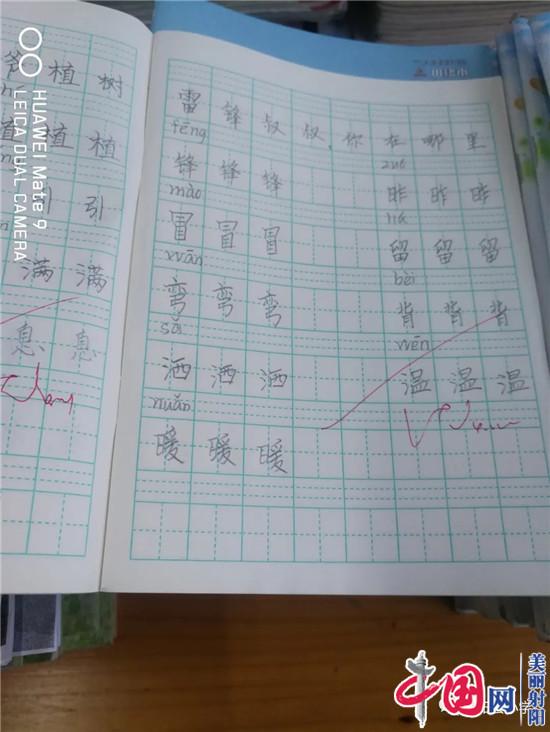 HUAWEI Mate 9
LEICA DUAL CAMERA
植 树
植 植
引 引
满 满
息 息
雷 锋 叔 叔，你 在 哪 里
fēng zuó
锋 锋 锋 昨 昨 昨
mào
冒 冒 冒 留 留 留
wān bèi
弯 弯 弯 背 背 背
sǎ wēn
洒 洒 洒 温 温 温
nuǎn
暖 暖 暖
中国网
美丽射阳